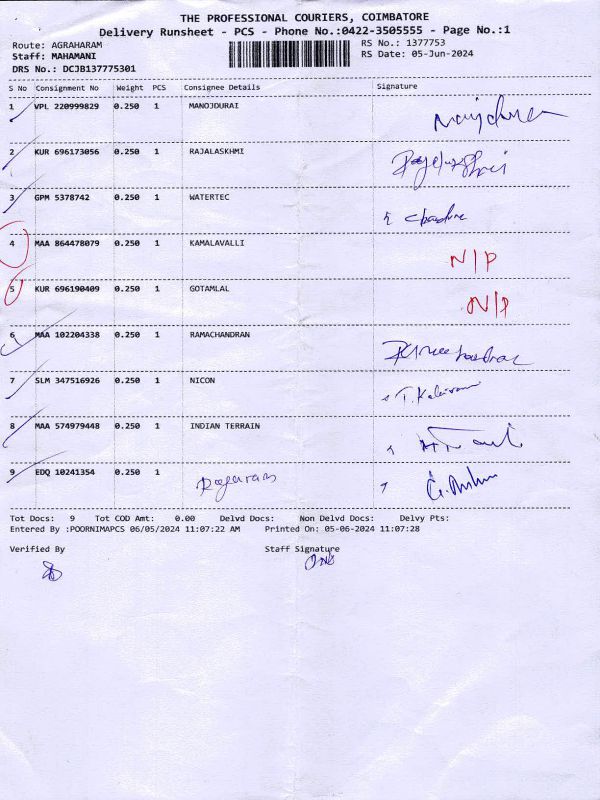 THE PROFESSIONAL COURIERS, COIMBATORE
Delivery Runsheet - PCS - Phone No.:0422-3505555 - Page No.:1
Route: AGRAHARAM
Staff: MAHAMANI
DRS No.: DCJB137775301
RS No.: 1377753
RS Date: 05-Jun-2024
S No Consignment No Weight PCS Consignee Details Signature
1 VPL 220999829 0.250 1 MANOJDURAI
2 KUR 696173056 0.250 1 RAJALASKHMI
3 GPM 5378742 0.250 1 WATERTEC
4 MAA 864478079 0.250 1 KAMALAVALLI N/P
5 KUR 696190409 0.250 1 GOTAMLAL N/P
6 MAA 102204338 0.250 1 RAMACHANDRAN
7 SLM 347516926 0.250 1 NICON
8 MAA 574979448 0.250 1 INDIAN TERRAIN
9 EDQ 10241354 0.250 1
Tot Docs: 9 Tot COD Amt: 0.00 Delvd Docs: Non Delvd Docs: Delvy Pts:
Entered By :POORNIMAPCS 06/05/2024 11:07:22 AM Printed On: 05-06-2024 11:07:28
Verified By Staff Signature